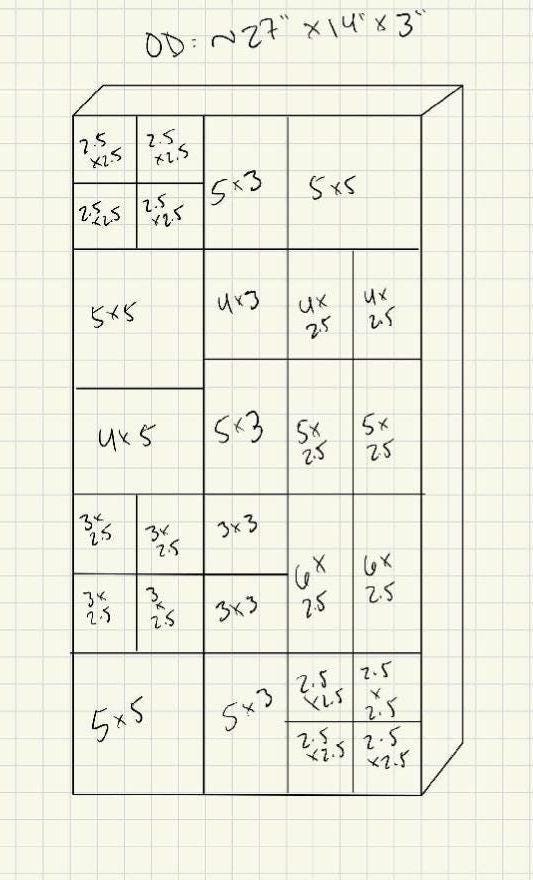 OD: ~27" x14" x 3"
2.5
x2.5
2.5
x2.5
5x3
5x5
2.5
x2.5
2.5
x2.5
5x5
4x3
4x
2.5
4x
2.5
4x5
5x3
5x
2.5
5x
2.5
3x
2.5
3x
2.5
3x3
6x
2.5
6x
2.5
3x
2.5
3
x
2.5
3x3
5x5
5x3
2.5
x2.5
2.5
x
2.5
2.5
x2.5
2.5
x2.5